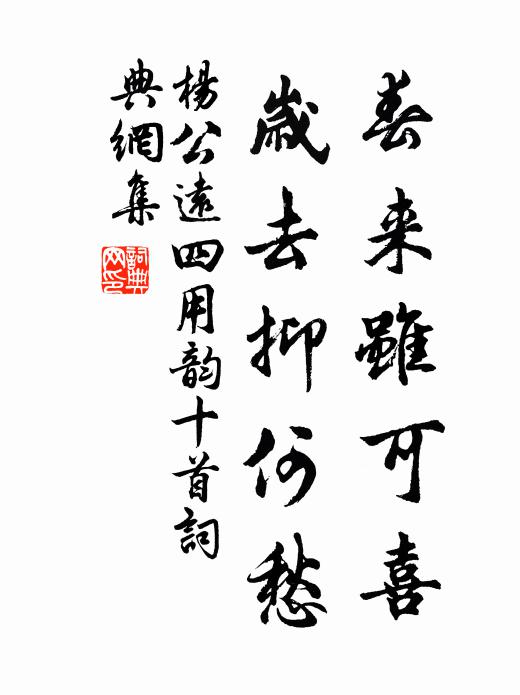 春来雖可喜
歲去抑何愁
楊公遠四用韵十首詞
典網集
詞典
网印